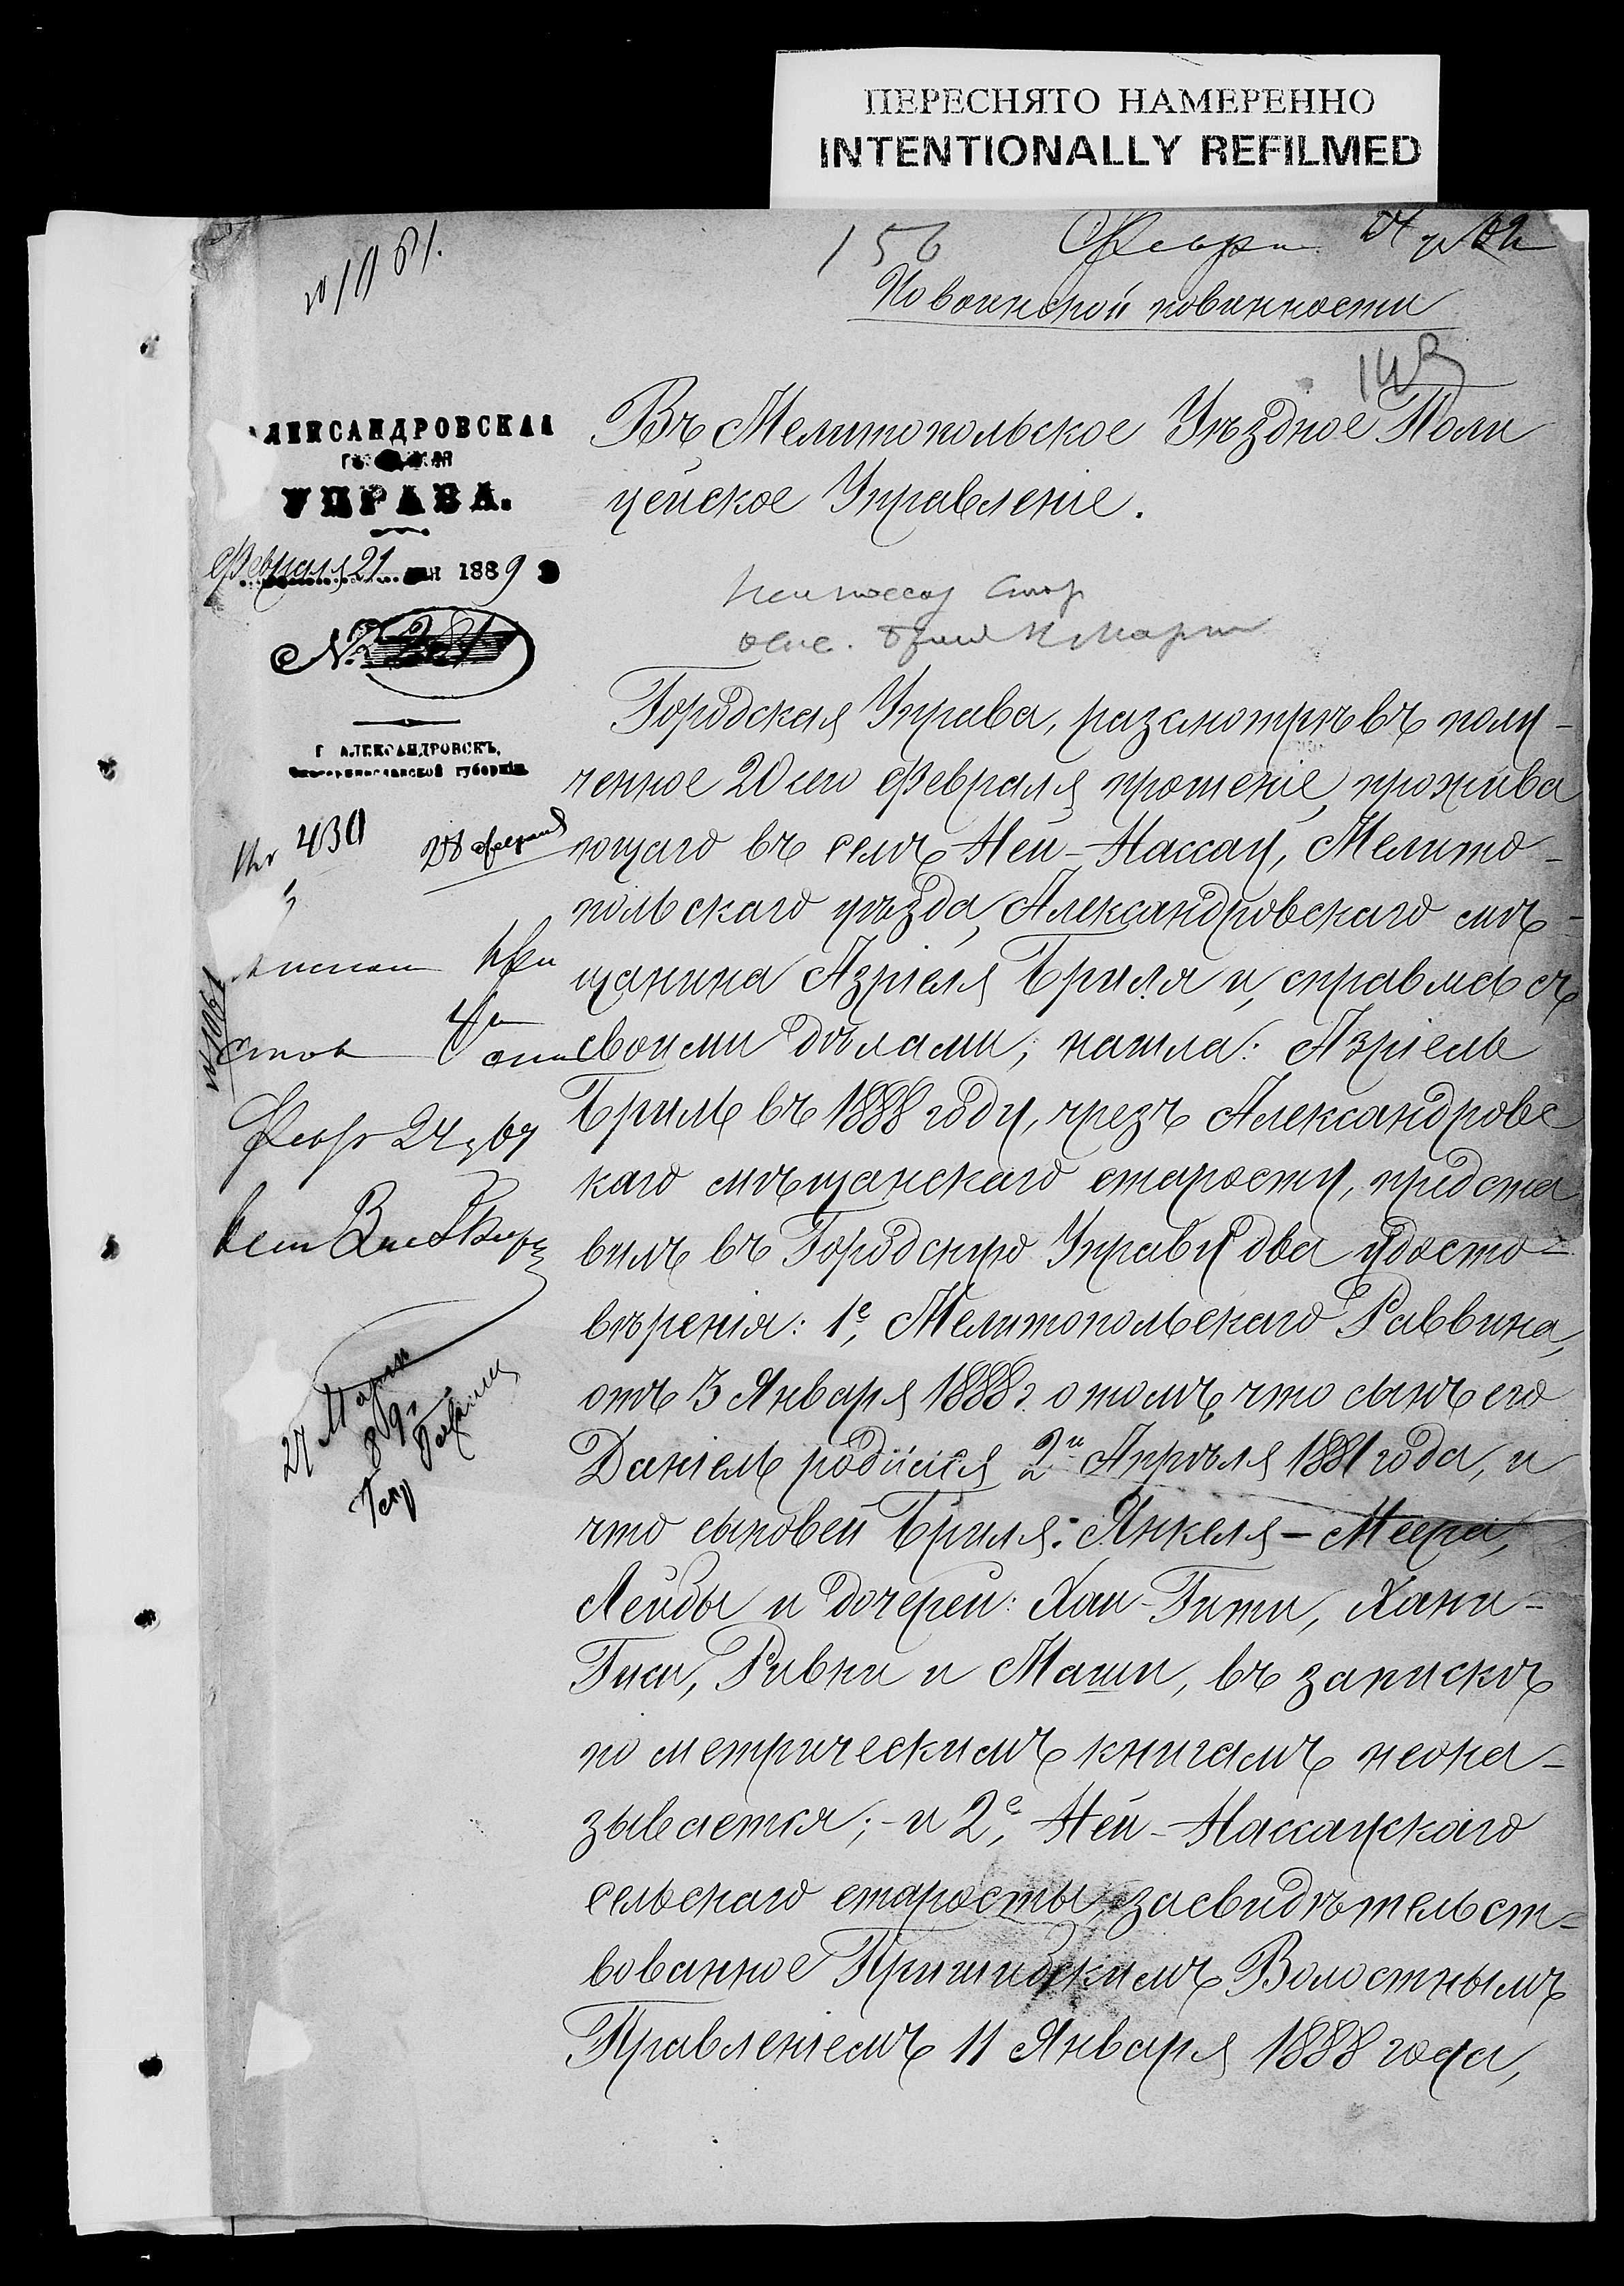 ПЕРЕСНЯТО НАМЕРЕННО
INTENTIONALLY REFILMED
156
По воинской повинности
АЛЕКСАНДРОВСКАЯ
УПРАВА.
Февраля 21 дня 1889
№
Г. АЛЕКСАНДРОВСКЪ,
Екатеринославской губерніи
№ 430
28 февраля
Въ Мелитопольское Уѣздное Поли
цейское Управленіе.
Городская Управа, разсмотрѣвъ полу-
ченное 20 сего Февраля прошеніе, прожива
ющаго въ селѣ Ней-Нассау, Мелито-
польскаго уѣзда, Александровскаго мѣ-
щанина Азріеля Бриля и, справясь съ
своими дѣлами, нашла: Азріель
Бриль въ 1888 году, чрезъ Александровс
каго мѣщанскаго старосту, предста
вилъ въ Городскую Управу два удосто-
вѣренія: 1е, Мелитопольскаго Раввина,
отъ 3 Января 1888 г. о томъ, что сынъ его
Даніель родился 2го Апрѣля 1881 года, и
что сыновей Бриля: Янкеля-Меера,
Лейбы и дочерей: Хаи-Гити, Хани-
Гиси, Ривки и Маши, въ запискѣ
по метрическимъ книгамъ неока-
зывается; - и 2е, Ней-Нассаускаго
сельскаго старосты, засвидѣтельст-
вованное Пришибскимъ Волостнымъ
Правленіемъ 11 Января 1888 года,
27 Марта